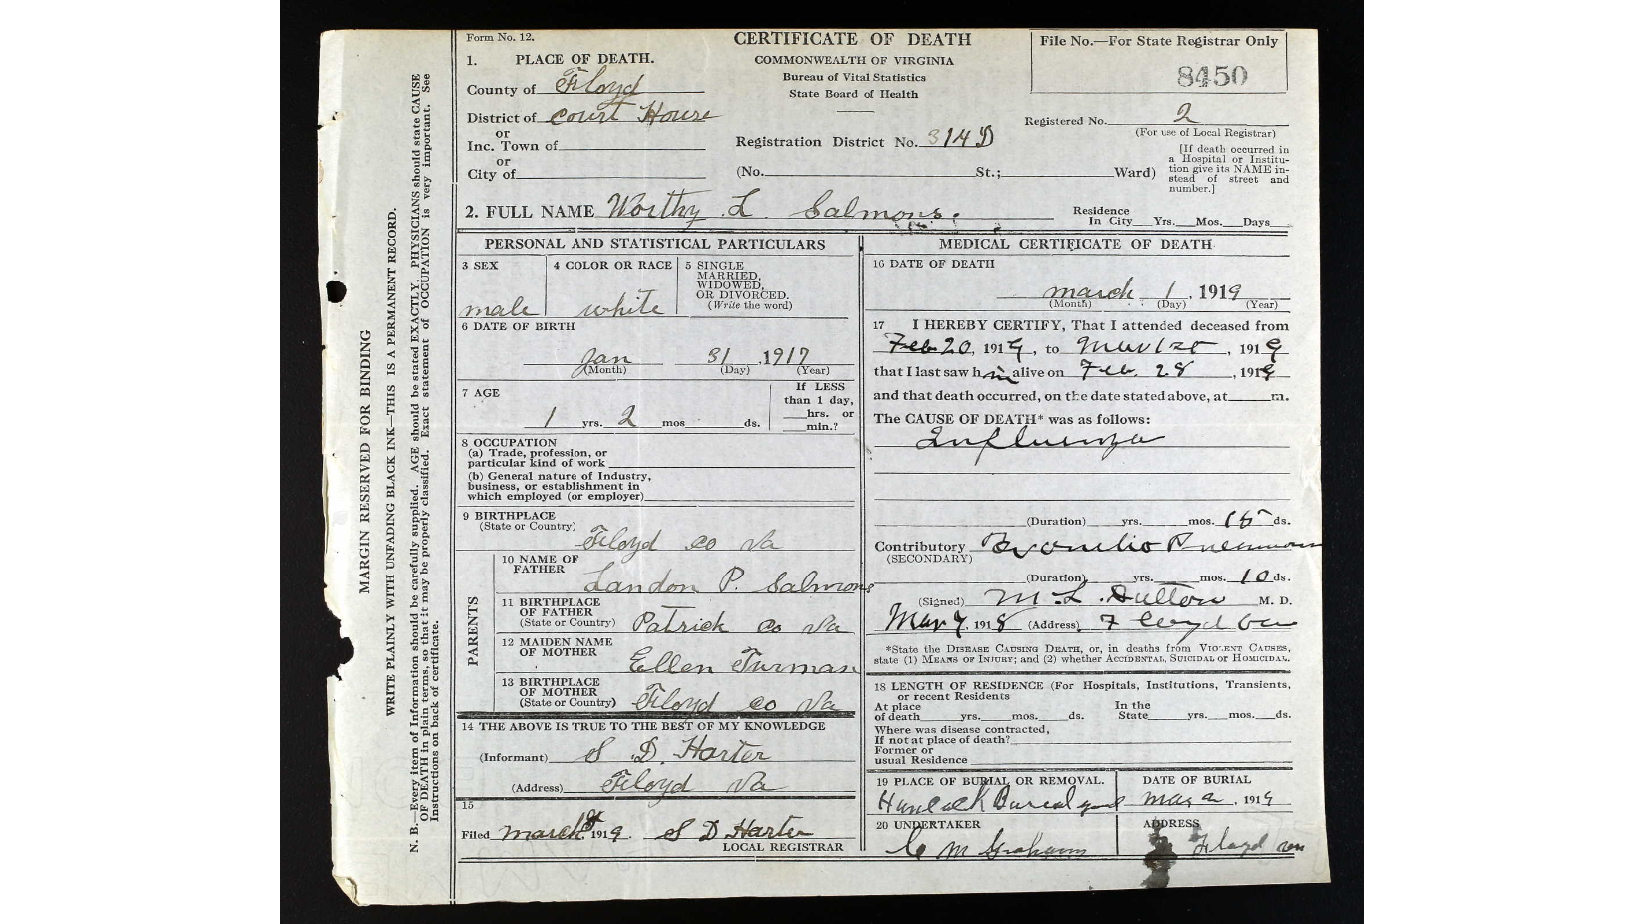 Form No. 12.
CERTIFICATE OF DEATH
COMMONWEALTH OF VIRGINIA
Bureau of Vital Statistics
State Board of Health
File No.—For State Registrar Only
8450
1. PLACE OF DEATH.
County of Floyd
District of Court House
or
Inc. Town of
or
City of
Registration District No. 314D
Registered No. 2
(For use of Local Registrar)
(No. St.; Ward)
[If death occurred in
a Hospital or Institu-
tion give its NAME in-
stead of street and
number.]
2. FULL NAME Worthy L Salmons.
Residence
In City Yrs. Mos. Days
PERSONAL AND STATISTICAL PARTICULARS
3 SEX
male
4 COLOR OR RACE
white
5 SINGLE
MARRIED,
WIDOWED,
OR DIVORCED.
(Write the word)
6 DATE OF BIRTH
Jan 31, 1917
(Month) (Day) (Year)
7 AGE
1 yrs. 2 mos ds.
If LESS
than 1 day,
hrs. or
min.?
8 OCCUPATION
(a) Trade, profession, or
particular kind of work
(b) General nature of Industry,
business, or establishment in
which employed (or employer)
9 BIRTHPLACE
(State or Country)
Floyd co Va
PARENTS
10 NAME OF
FATHER
Landon P. Salmons
11 BIRTHPLACE
OF FATHER
(State or Country)
Patrick Co Va
12 MAIDEN NAME
OF MOTHER
Ellen Turman
13 BIRTHPLACE
OF MOTHER
(State or Country)
Floyd co Va
14 THE ABOVE IS TRUE TO THE BEST OF MY KNOWLEDGE
(Informant) S D. Harter
(Address) Floyd Va
15
Filed march 1919. S D Harter
LOCAL REGISTRAR
MEDICAL CERTIFICATE OF DEATH
16 DATE OF DEATH
march 1, 1919
(Month) (Day) (Year)
17 I HEREBY CERTIFY, That I attended deceased from
Feb 20, 1919, to Mar 1st, 1919
that I last saw him alive on Feb. 28, 1919
and that death occurred, on the date stated above, at m.
The CAUSE OF DEATH* was as follows:
Influenza
(Duration) yrs. mos. 15 ds.
Contributory Broncho Pneumonia
(SECONDARY)
(Duration) yrs. mos. 10 ds.
(Signed) M. L. Dutton M. D.
Mar 7, 1918 (Address) Floyd
*State the DISEASE CAUSING DEATH, or, in deaths from VIOLENT CAUSES,
state (1) MEANS OF INJURY; and (2) whether ACCIDENTAL, SUICIDAL or HOMICIDAL.
18 LENGTH OF RESIDENCE (For Hospitals, Institutions, Transients,
or recent Residents
At place
of death yrs. mos. ds.
In the
State yrs. mos. ds.
Where was disease contracted,
If not at place of death?
Former or
usual Residence
19 PLACE OF BURIAL OR REMOVAL.
DATE OF BURIAL
Burial 1919
20 UNDERTAKER
C M Graham
ADDRESS
Floyd
MARGIN RESERVED FOR BINDING
WRITE PLAINLY WITH UNFADING BLACK INK—THIS IS A PERMANENT RECORD.
N. B.—Every item of information should be carefully supplied. AGE should be stated EXACTLY. PHYSICIANS should state CAUSE
OF DEATH in plain terms, so that it may be properly classified. Exact statement of OCCUPATION is very important. See
Instructions on back of certificate.